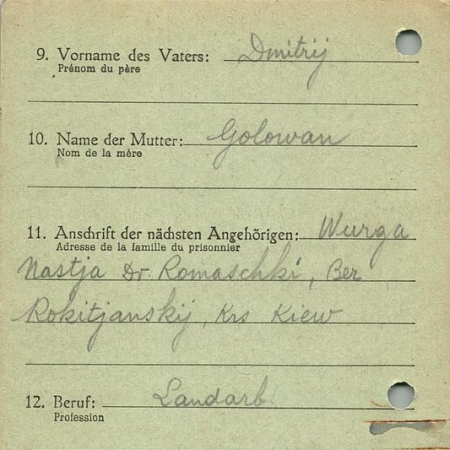 9. Vorname des Vaters: Dmitrij
Prénom du père
10. Name der Mutter: Golowan
Nom de la mère
11. Anschrift der nächsten Angehörigen: Wurga
Adresse de la famille du prisonnier
Nastja Dr. Romaschki, Ber
Rokitjanskij, Krs Kiew
12. Beruf: Landarb.
Profession